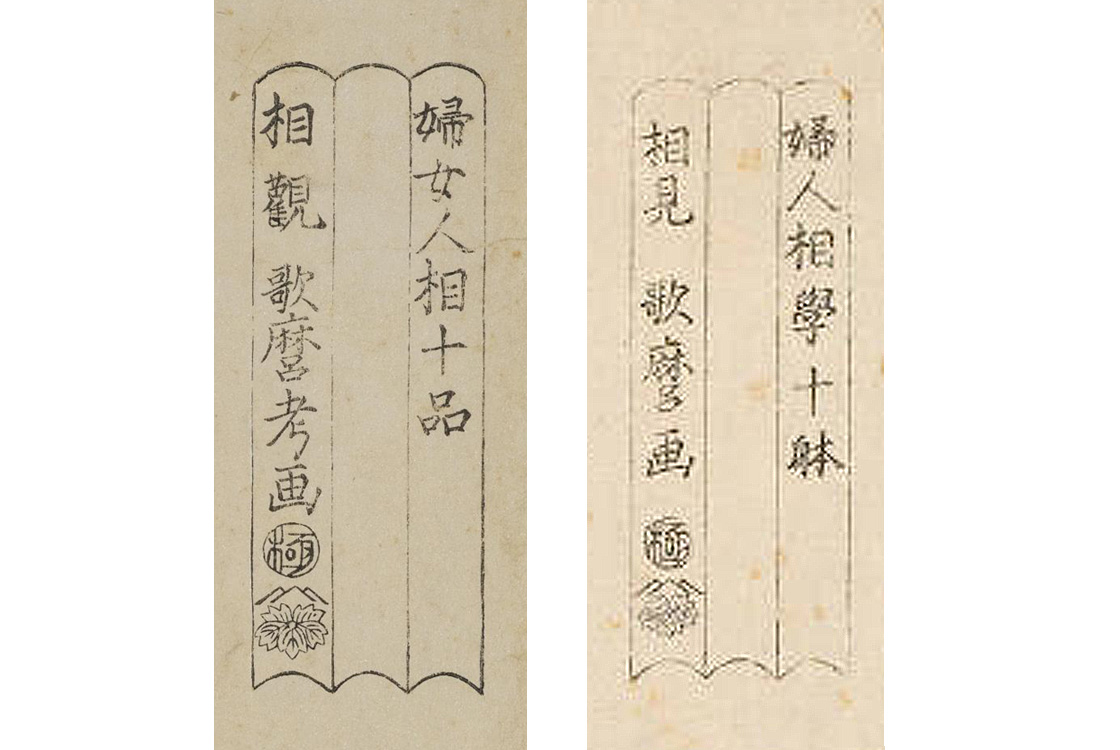 婦女人相十品
相觀 歌麿考画
極
婦人相學十躰
相見 歌麿画
極